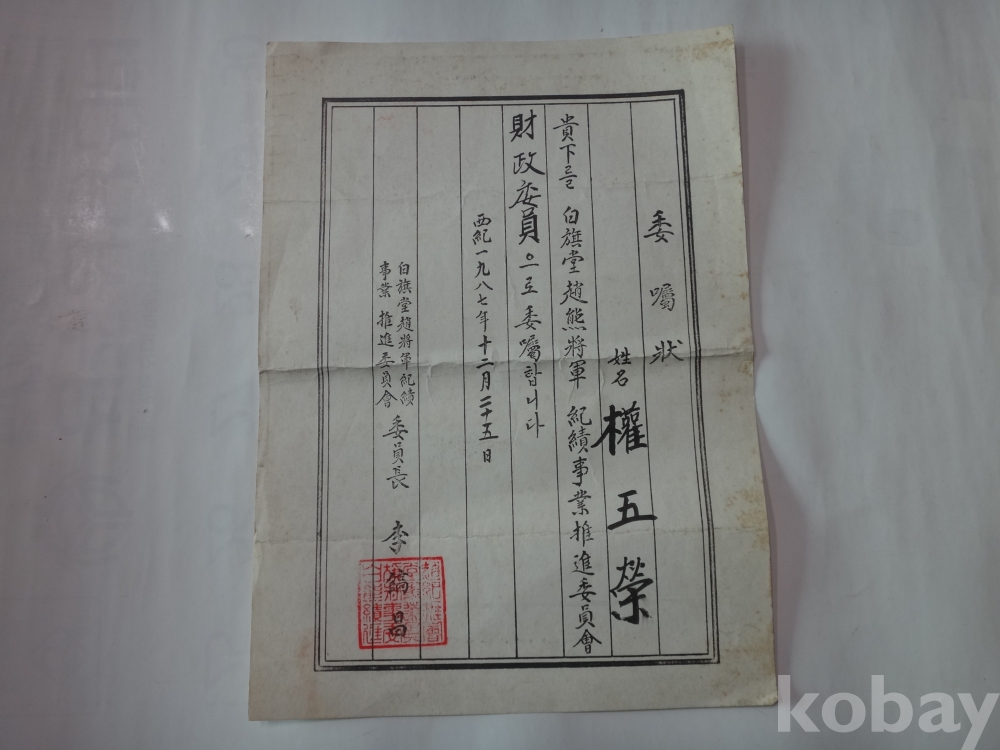 委囑狀
姓名 權五榮
貴下를 白旗堂趙熊將軍 紀績事業推進委員會
財政委員으로 委囑합니다
西紀一九八七年十二月二十五日
白旗堂趙將軍紀績
事業推進委員會 委員長 李鎬昌
kobay